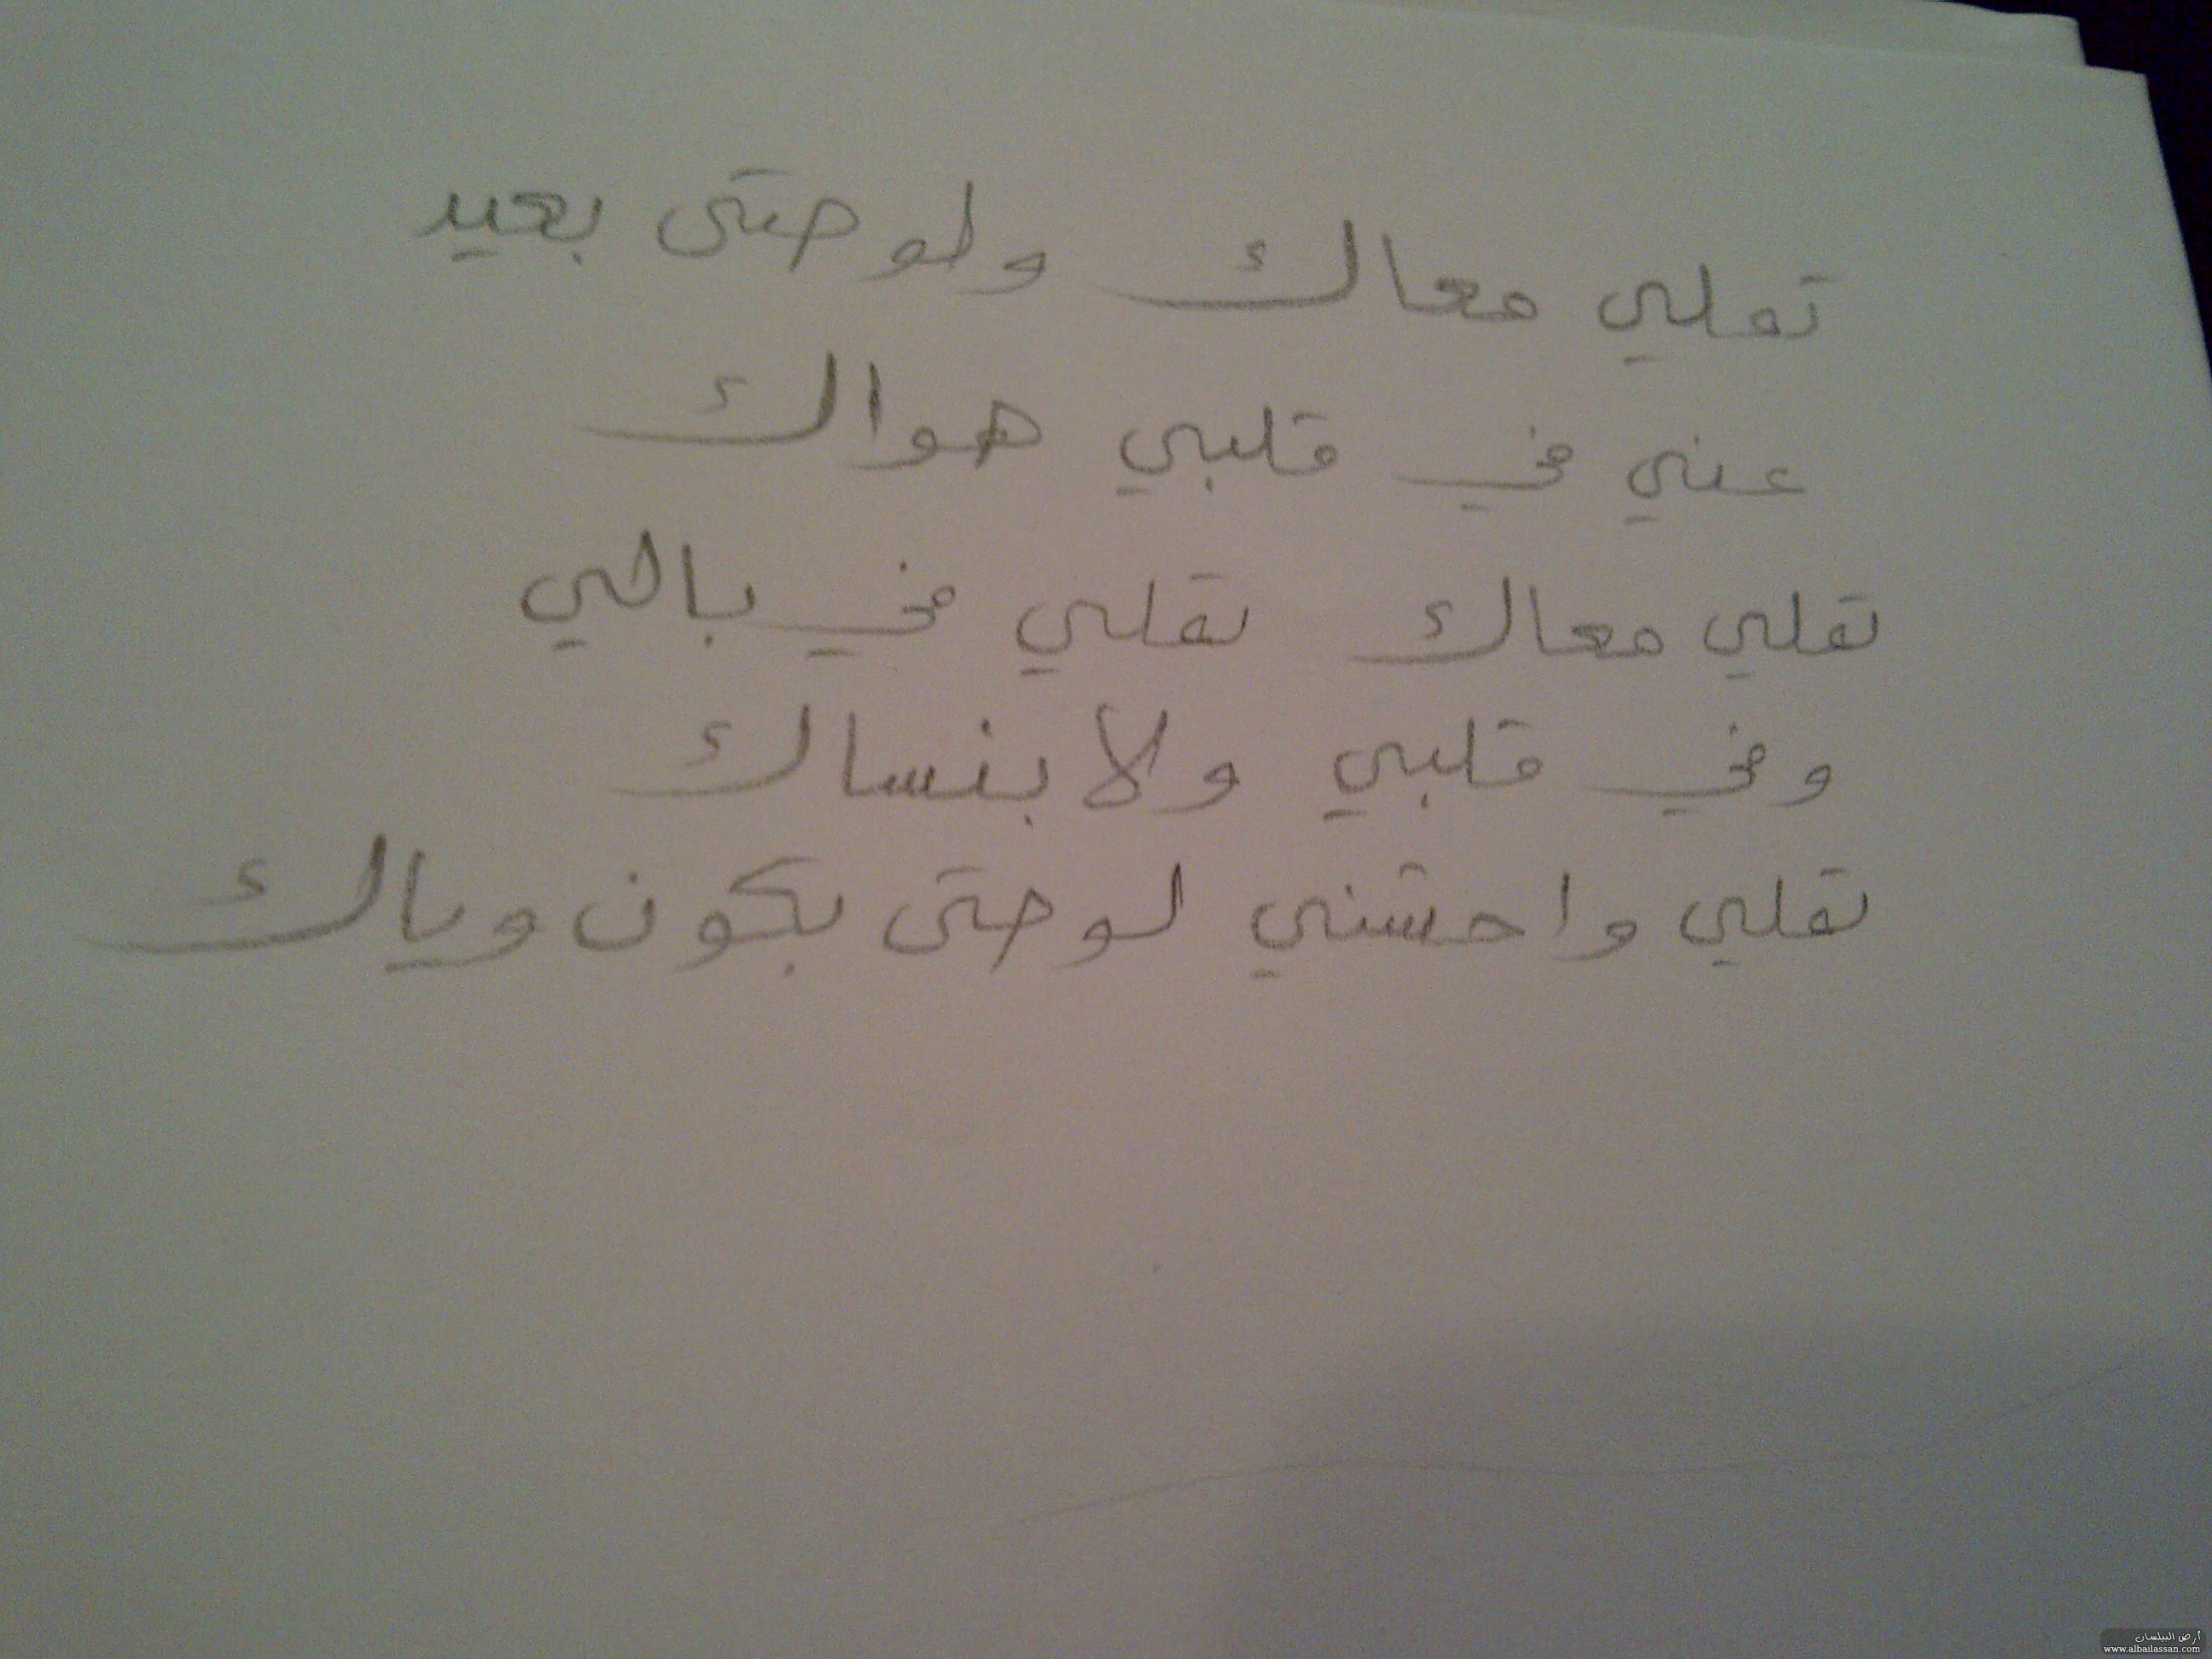 تملي معاك ولو حتى بعيد
عني في قلبي هواك
تملي معاك تملي في بالي
وفي قلبي ولا بنساك
تملي واحشني لو حتى بكون وياك
أرض البيلسان
www.albailassan.com